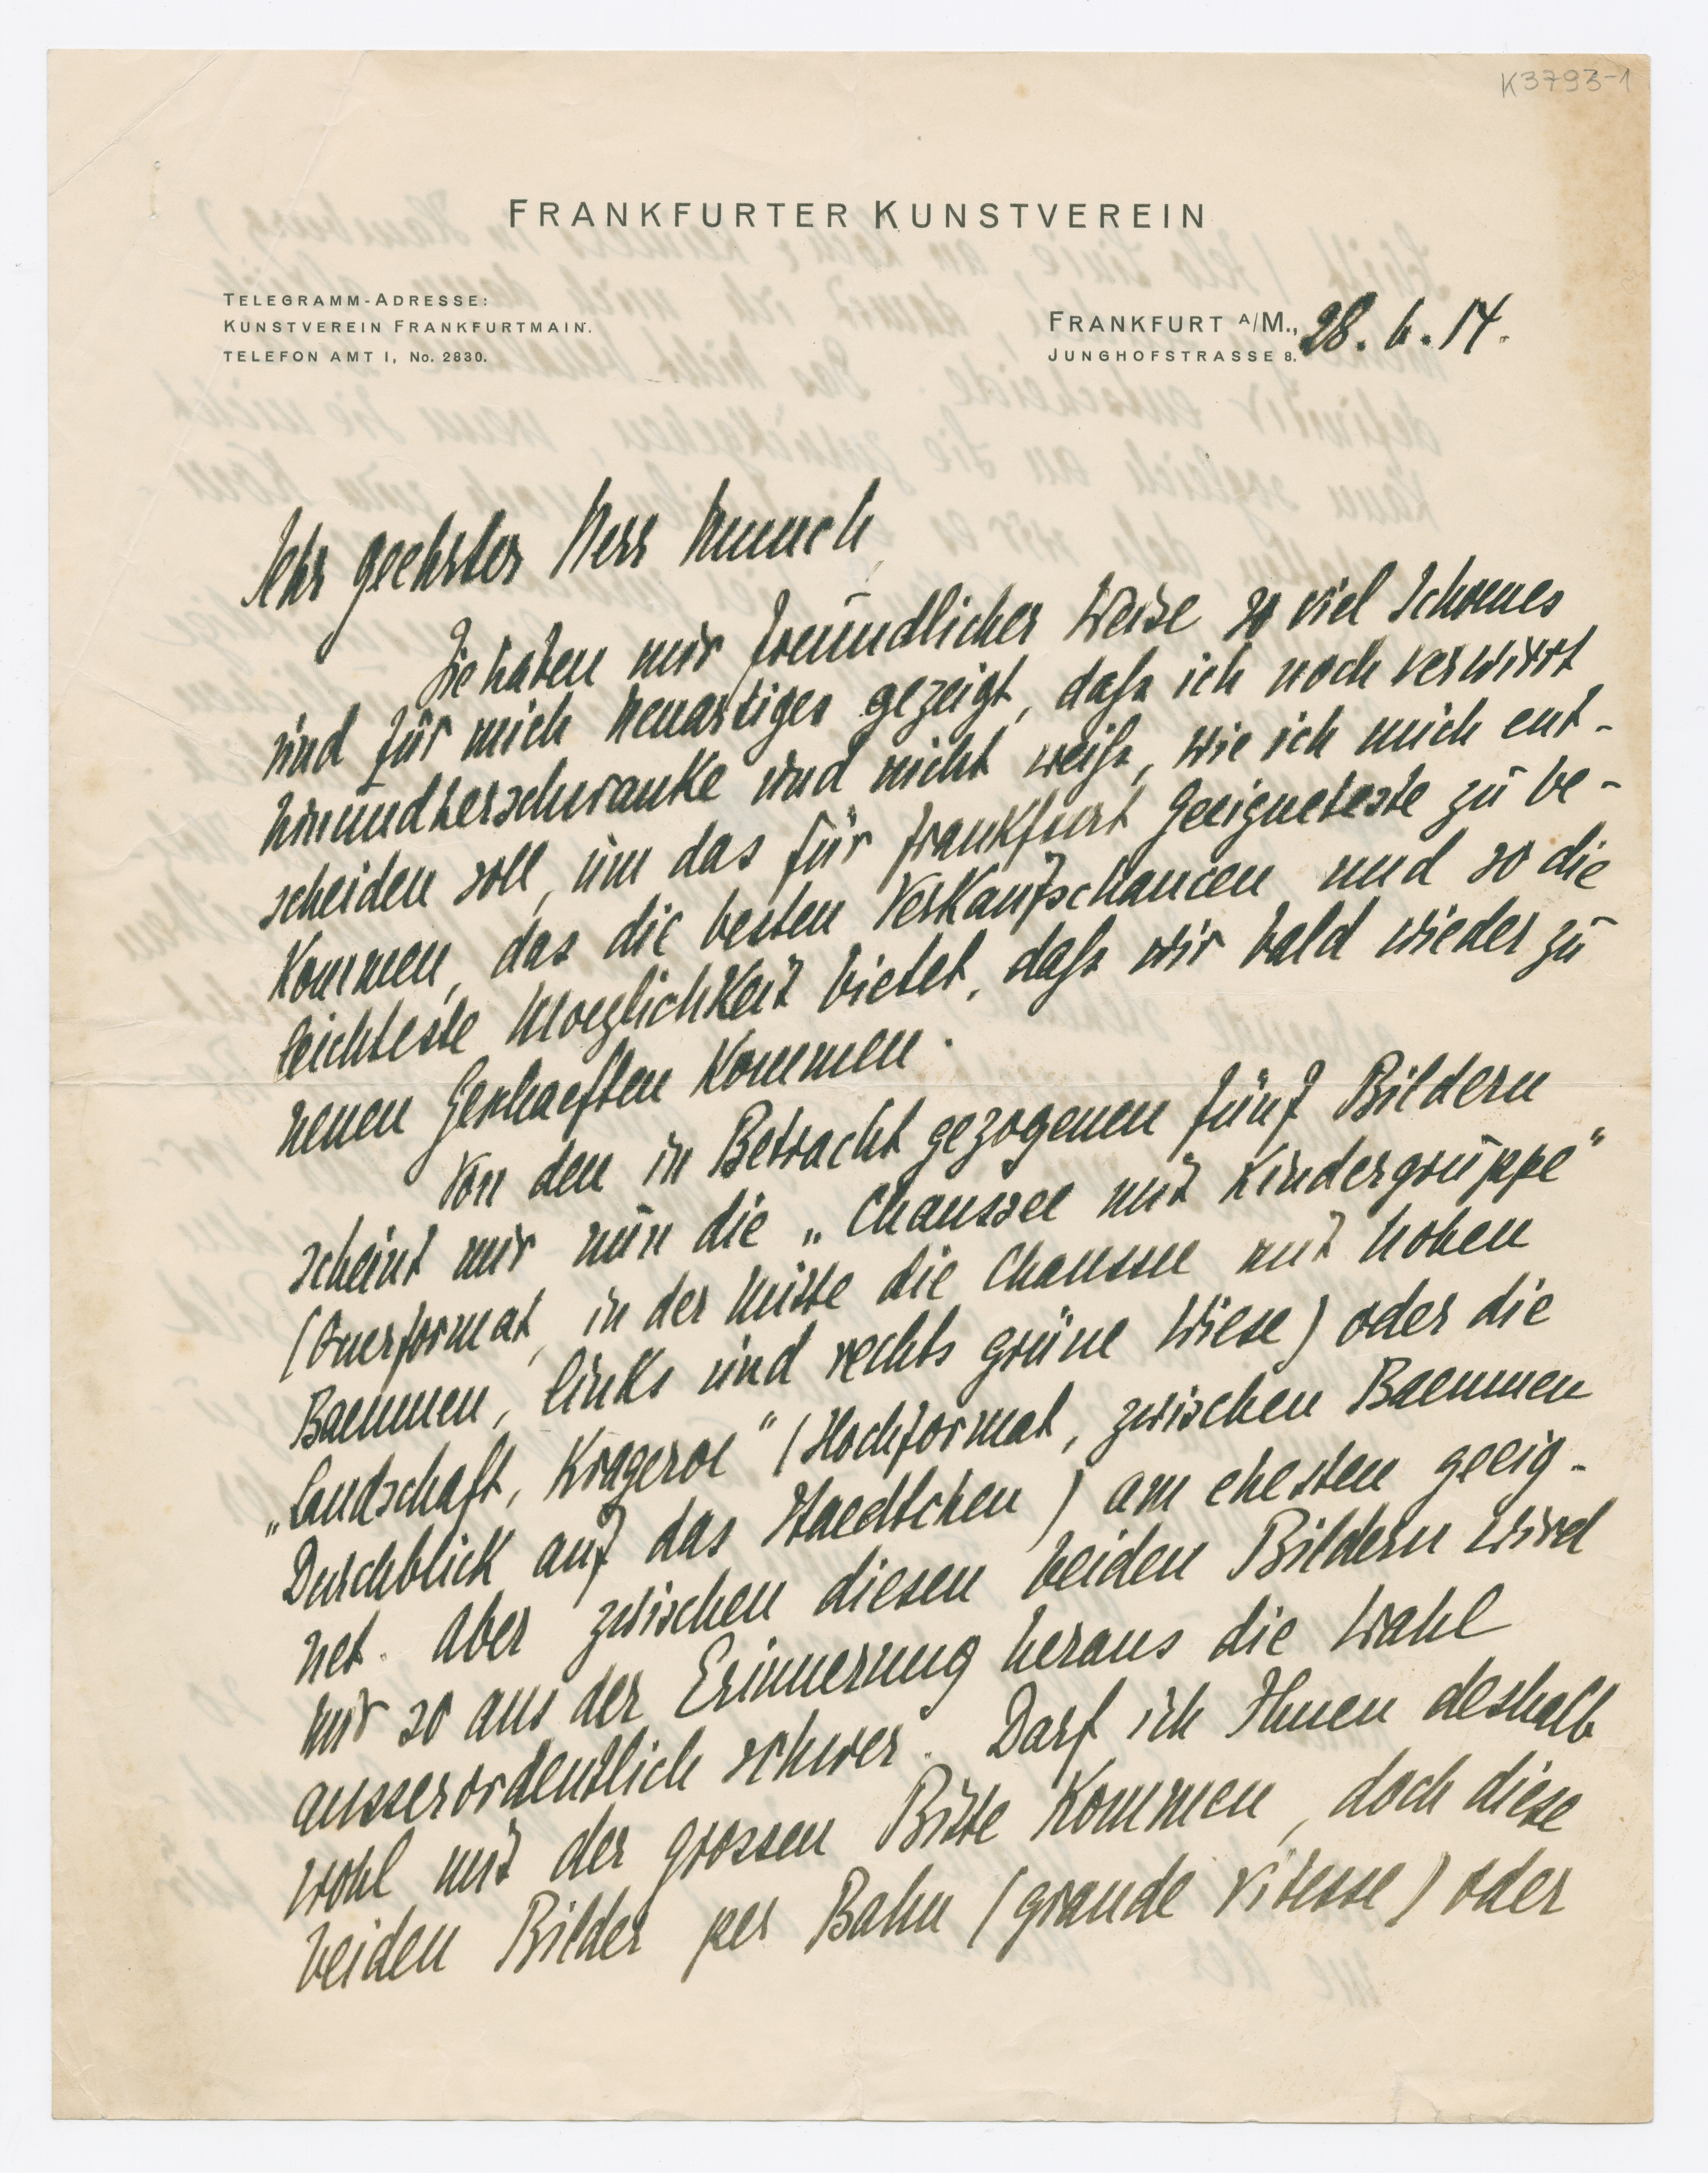 K3793-1
FRANKFURTER KUNSTVEREIN
TELEGRAMM-ADRESSE:
KUNSTVEREIN FRANKFURTMAIN.
TELEFON AMT I, No. 2830.
FRANKFURT A/M., 28.6.14.
JUNGHOFSTRASSE 8.
Sehr geehrter Herr Munch,
Sie haben mir freundlicher Weise so viel Schoenes
und für mich Neuartiges gezeigt, dass ich noch verwirrt
hinundherschwanke und nicht weiss, wie ich mich ent-
scheiden soll, um das für Frankfurt Geeigneteste zu be-
kommen, das die besten Verkaufschancen und so die
leichteste Moeglichkeit bietet, dass wir bald wieder zu
neuen Geschaeften kommen.
Von den in Betracht gezogenen fünf Bildern
scheint mir nun die „Chaussee mit Kindergruppe"
(Querformat, in der Mitte die Chaussee mit hohen
Baeumen, links und rechts grüne Wiese) oder die
„Landschaft, Krageroe" (Hochformat, zwischen Baeumen
Durchblick auf das Staedtchen) am ehesten geeig-
net. Aber zwischen diesen beiden Bildern wird
mir so aus der Erinnerung heraus die Wahl
ausserordentlich schwer. Darf ich Ihnen deshalb
wohl mit der grossen Bitte kommen, doch diese
beiden Bilder per Bahn (grande vitesse) oder